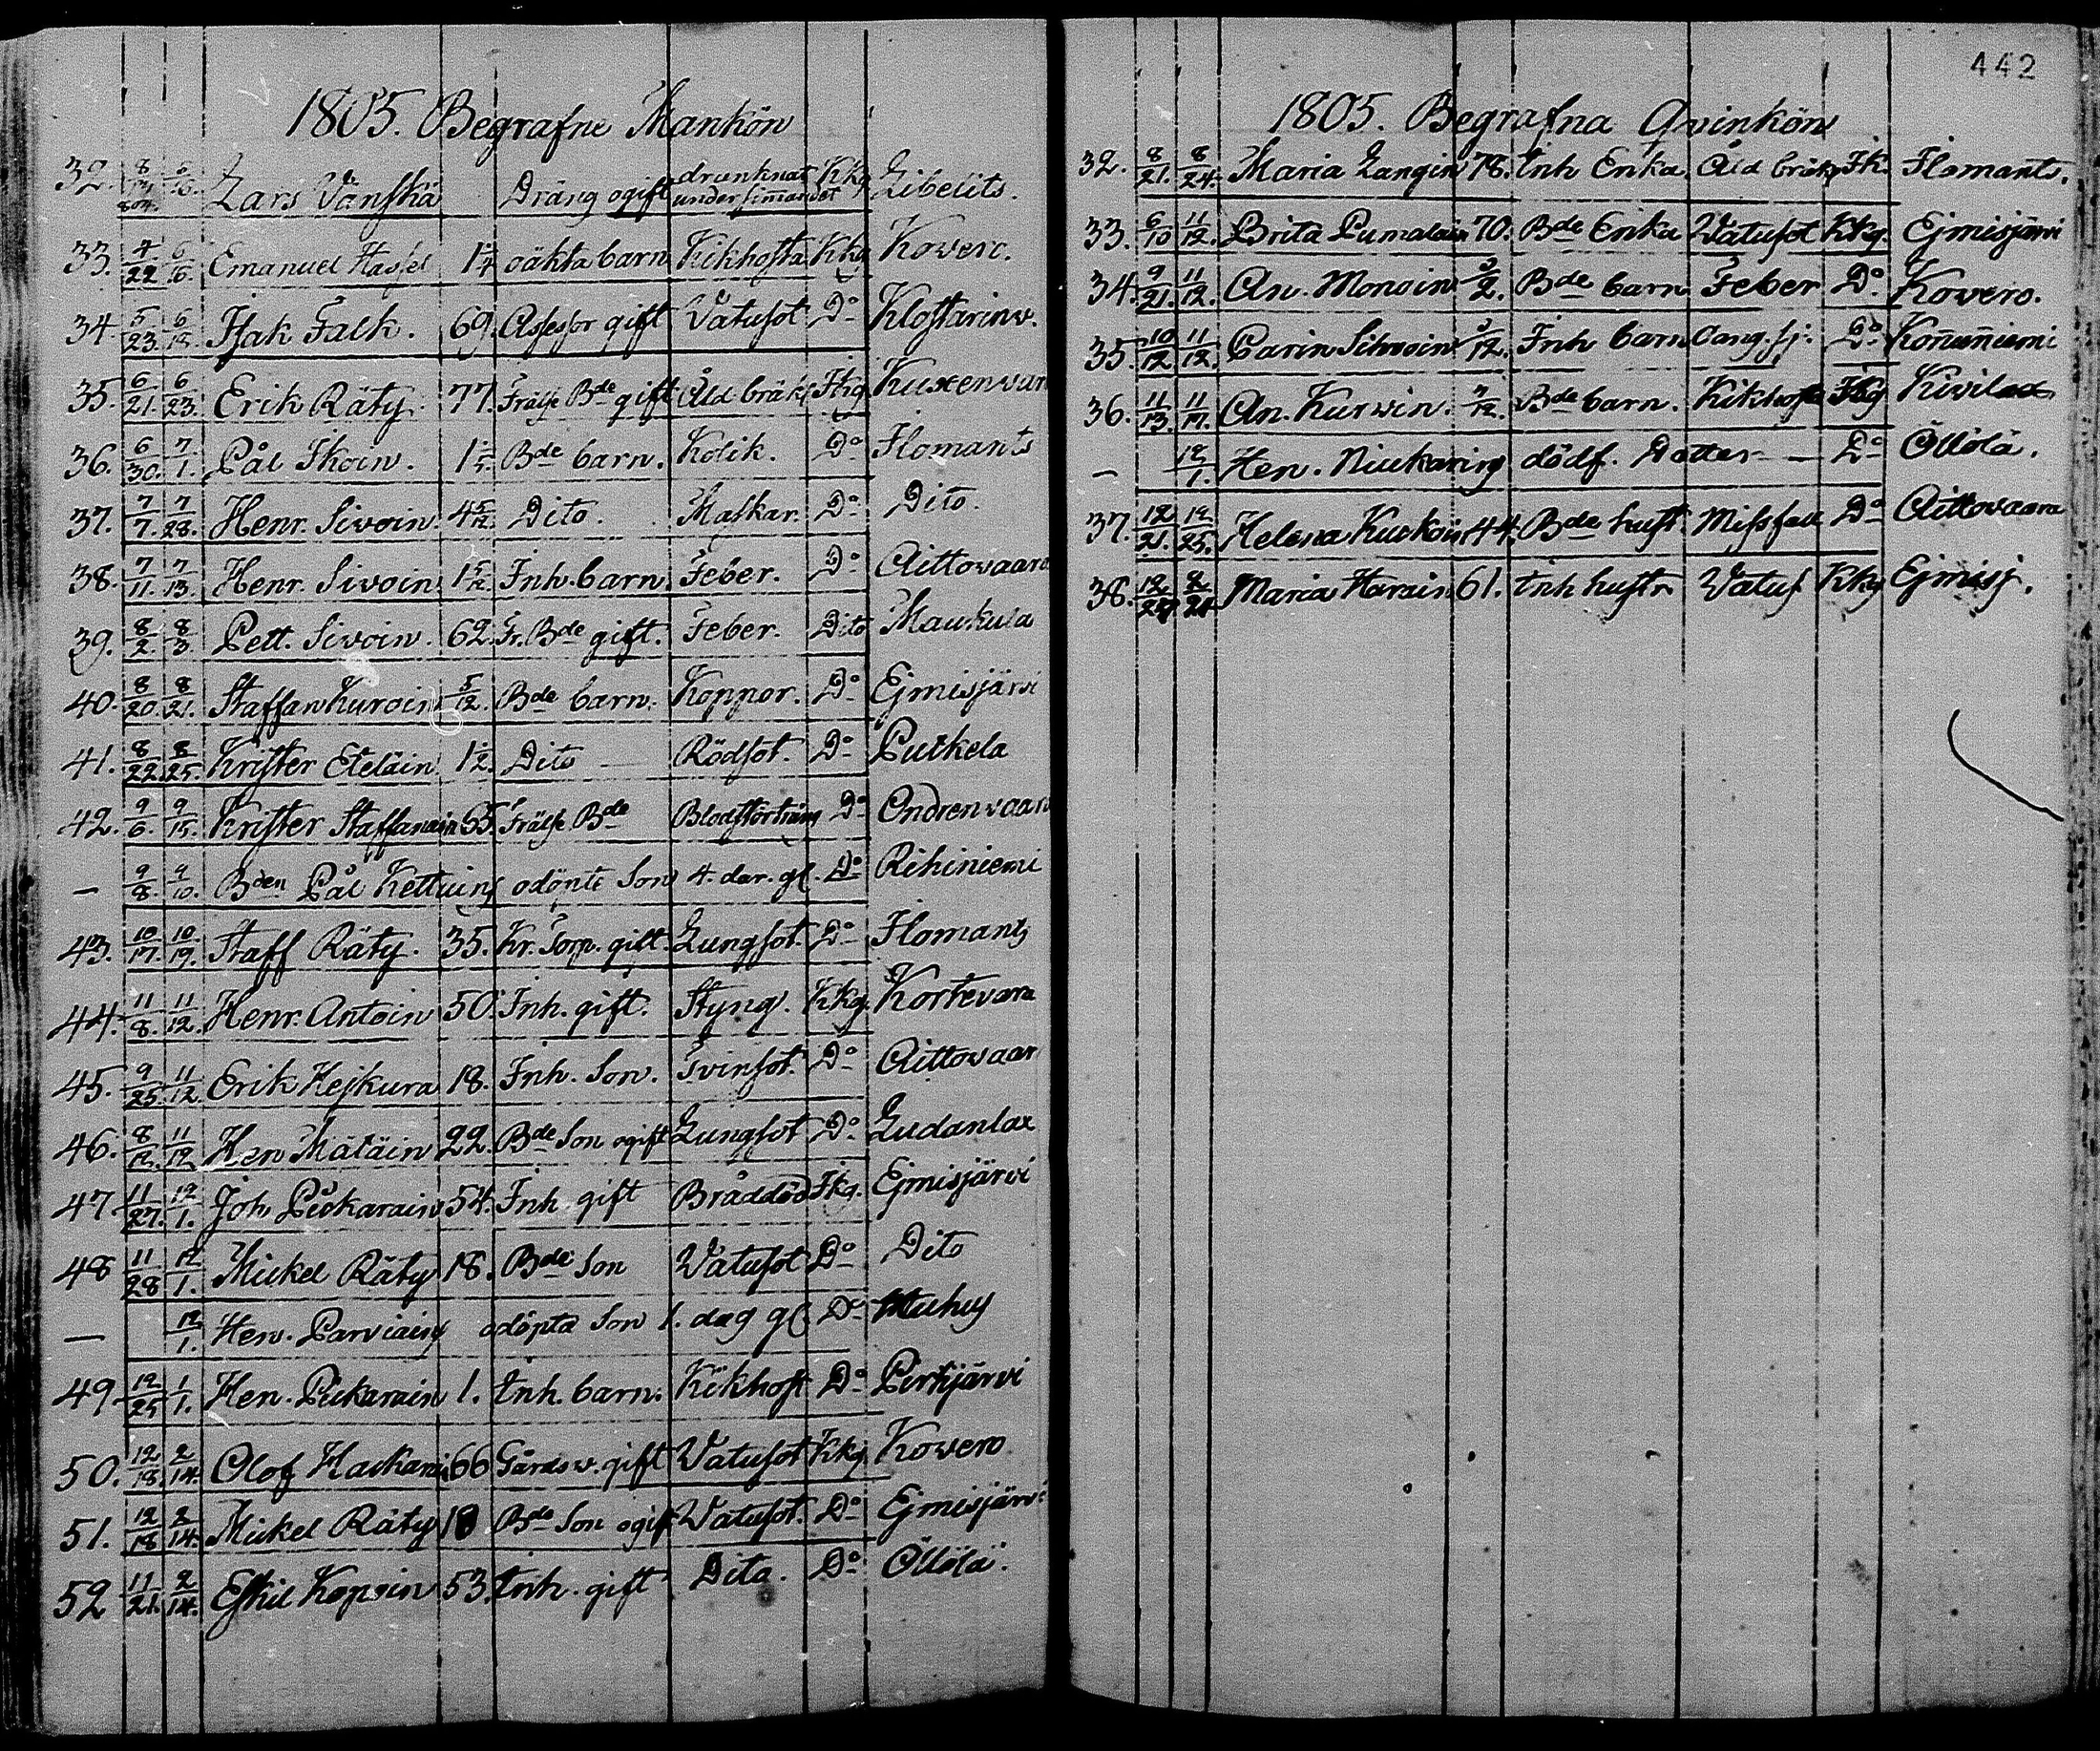 1805. Begrafne Mankön
32. 8/14. 804. 6/16. Lars Vänskä Dräng ogift drunknat under simmandet Kkg Libelits.
33. 4/22. 6/16. Emanuel Hassel 1 1/4 oäkta barn Kikhosta Kkg Kovero.
34. 5/23. 6/18. Isak Falk. 69. Assessor gift Vatusot Do Klostarinv.
35. 6/21. 6/23. Erik Räty. 77. Frälse Bde gift Åld bräkl Ikg
36. 6/30. 7/1. Pål Ikoin. Bde barn. Kolik. Do Ilomants
37. 7/7. 7/28. Henr. Sivoin. 4 5/12. Dito. Maskar. Do Dito.
38. 7/11. 7/13. Henr. Sivoin 1 1/2 Inh. barn Feber. Do Aittovaara
39. 8/2 8/3. Pett. Sivoin. 62. Fr. Bde gift. Feber. Dito Maukula
40. 8/20. 8/21. Staffan Kuroin 5/12. Bde barn. Koppor. Do Ejmisjärvi
41. 8/22. 8/25. Krister Eteläin 1 1/2. Dito — Rödsot. Do Putkela
42. 9/6. 9/15. Krister Staffanain 65. Frälse Bde Blodstörtning Do Ondrenvaara
— 9/8. 9/10. Bden Pål Kettuins odöpte Son 4. dar. gl. Do Rihiniemi
43. 10/17. 10/19. Staff Räty. 35. Kr. Torp. gift. Lungsot. Do Ilomants
44. 11/8. 11/12. Henr. Antoin 50. Inh. gift. Styng. Kkg. Kortevara
45. 9/25. 11/12 Erik Hejkura 18. Inh. Son. Tvinsot. Do Aittovaar
46. 8/12. 11/12 Hen Mätäin 22. Bde Son ogift Lungsot Do Ludanlax
47. 11/27. 12/1. Joh Pickarain 54. Inh. gift Bråddöd Ikg. Ejmisjärvi
48 11/28 12/1. Mickel Räty 18. Bde Son Vatusot Do Dito
— 12/1. Hen. Parviains odöpta Son 1. dag gl. Do Muhus
49. 12/25 1/1. Hen. Pickarain 1. Inh. barn. Kikhost Do Pertijärvi
50. 12/18. 2/14. Olof Hackarain 66 Gårdsv. gift Vatusot Kkg. Kovero
51. 12/18 2/14. Mickel Räty 18 Bde Son ogift Vatusot. Do Ejmisjärvi
52 11/21. 2/14. Eskil Kopoin 53. Inh. gift Dito. Do Öllölä.
442
1805. Begrafna Qvinkön
32. 8/21. 8/24. Maria Langin 78. Inh Enka Åld bräkl Ik. Ilomants.
33. 6/10 11/12. Brita Pumaläin 70. Bde Enka Vatusot Kkg. Ejmisjärvi
34. 9/21. 11/12. An. Monoin 3/2. Bde barn Feber Do Kovero.
35. 10/12 11/12. Carin Sihvoin 3/12. Inh barn Do Konnuniemi
36. 11/13. 11/17. An. Kurvin. 3/12. Bde barn. Kikhosta Ikg
— 12/1. Hen. Niukarins dödf. Dotter — Do Öllölä.
37. 12/21. 12/25. Helena Kuokoin 44. Bde hust. Missfall Do Aittovaara
38. 12/24. 2/21 Maria Harain 61. Inh hustr Vatus Kkg Ejmisj.